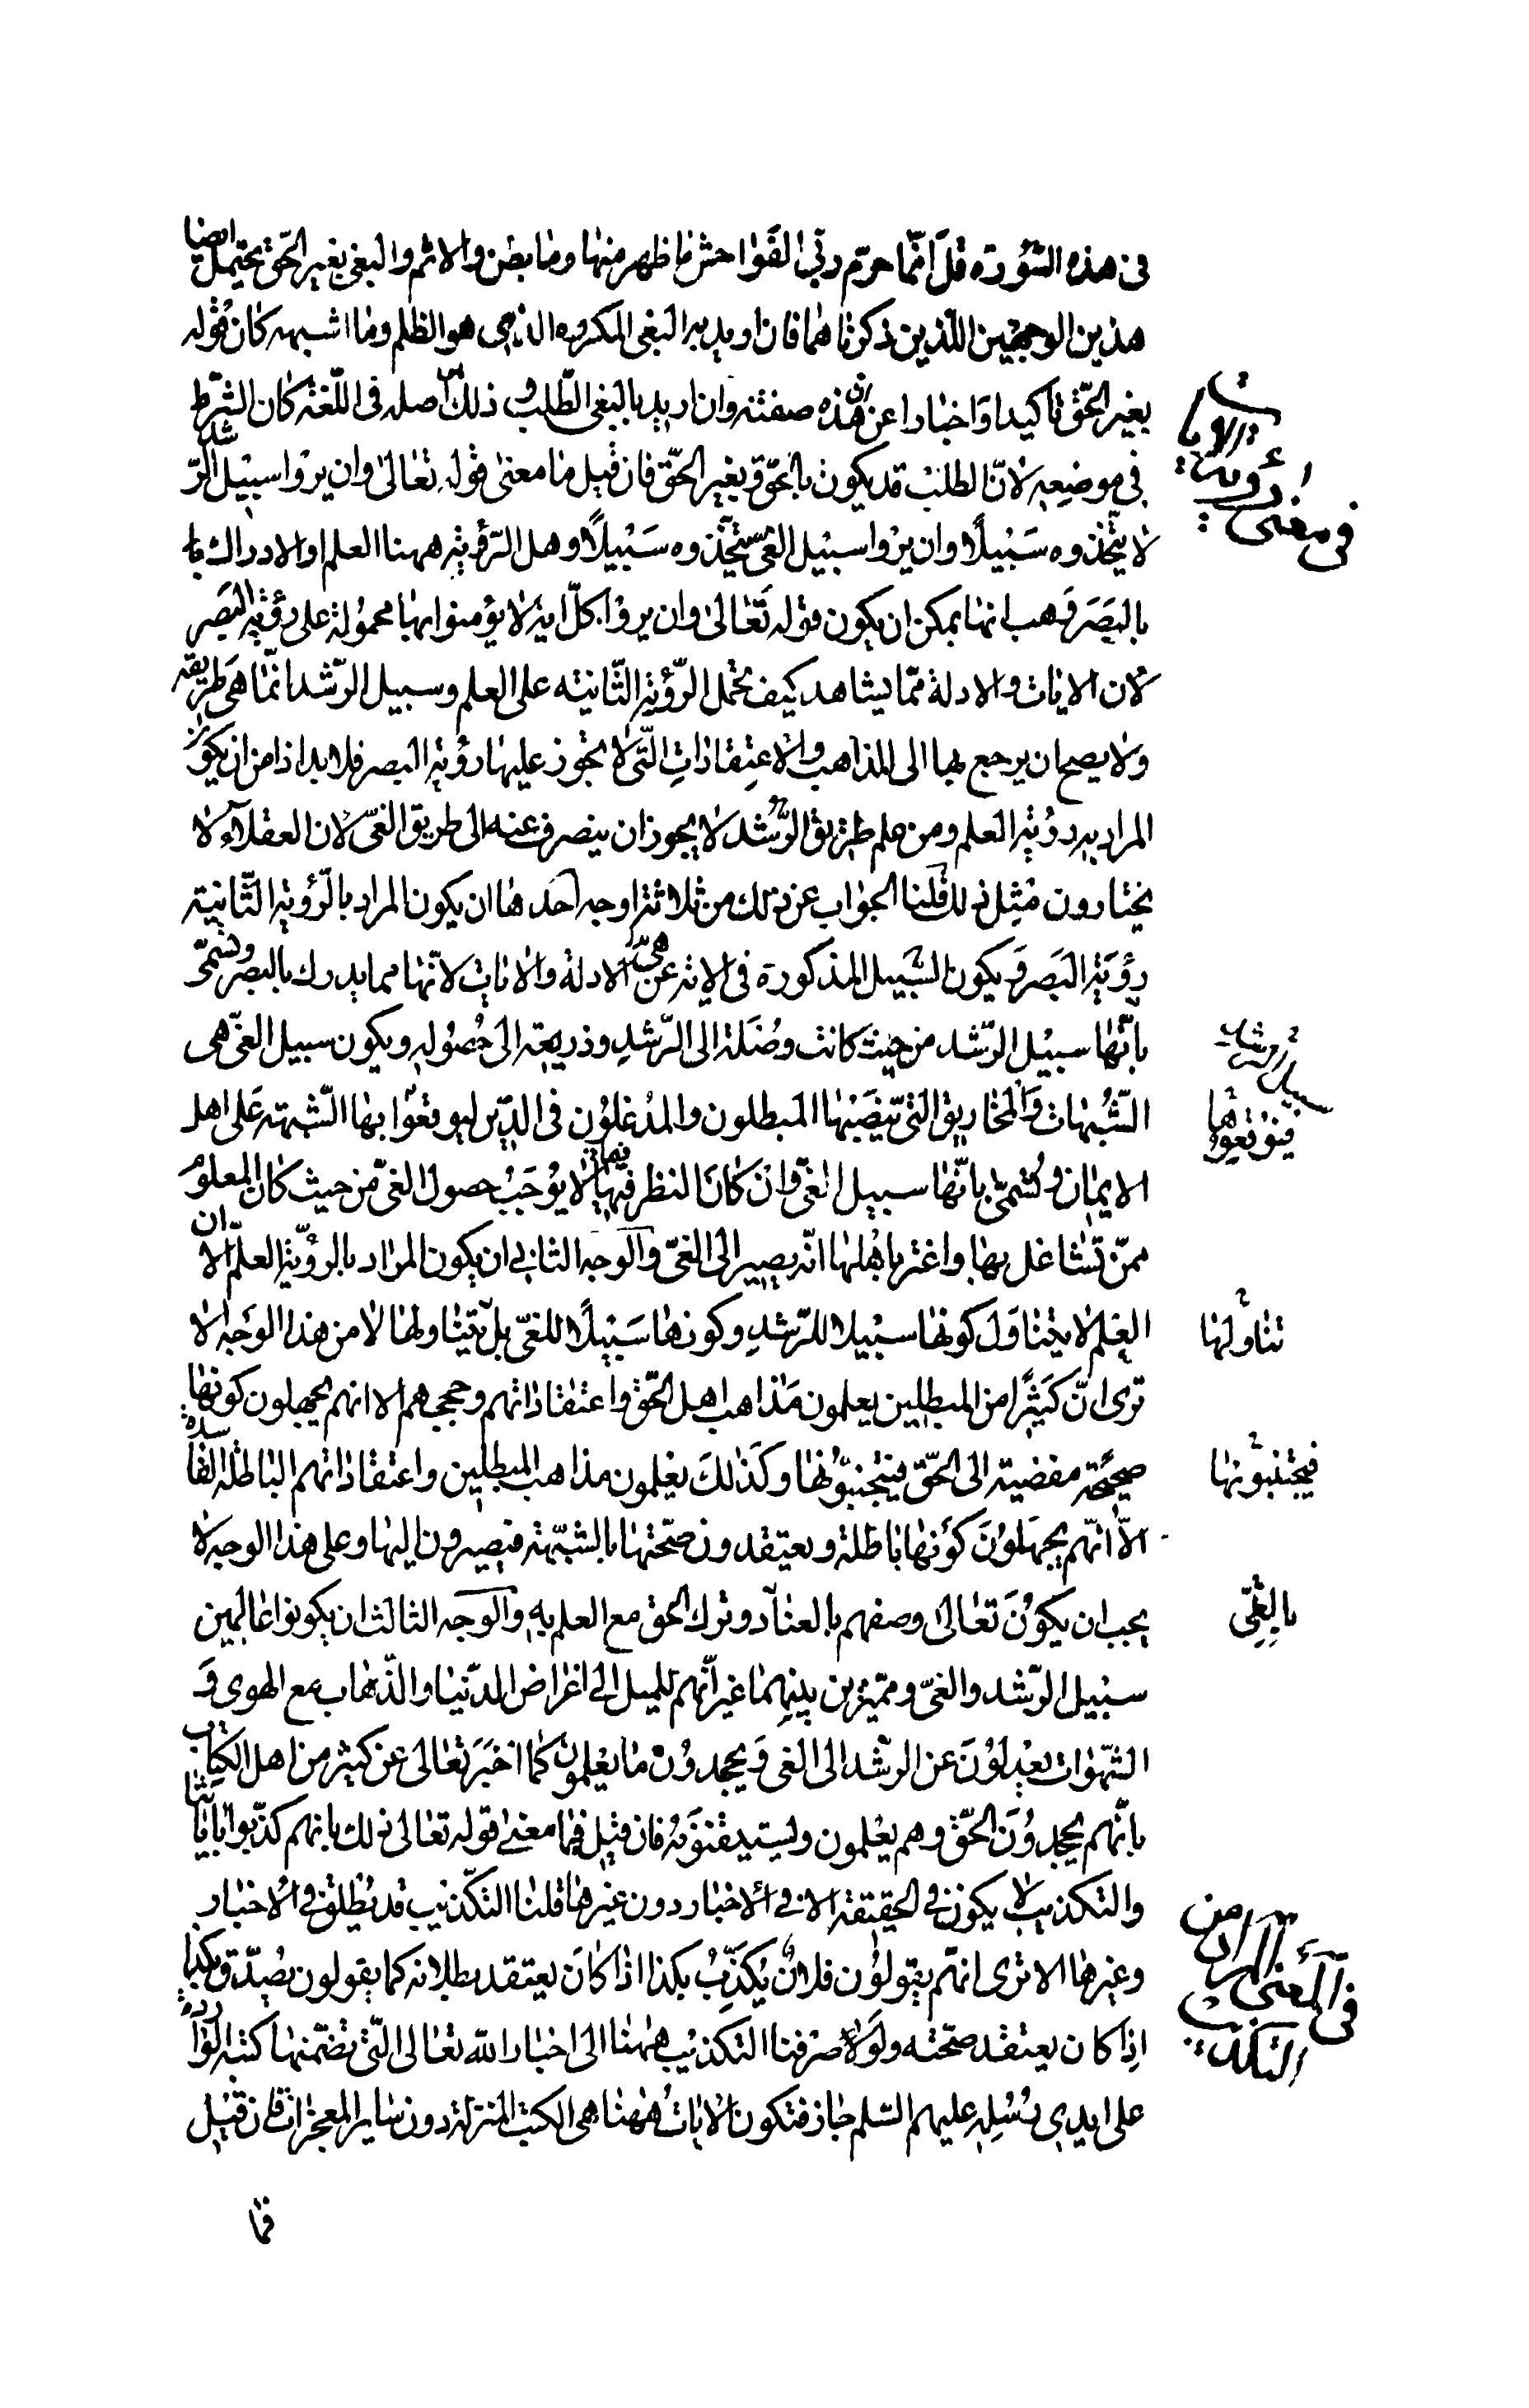 فى هذه السّورة قل انّما حرّم ربّى الفواحش ما ظهر منها وما بطن والاثم والبغى بغير الحّق يحتمل ايضا
هذين الوجهين اللّذين ذكرناهما فان اريد به البغى المكروه الذى هو الظلم وما اشبهه كان قوله
بغير الحّق تاكيدا واخبارا عن انّ هذه صفته وان اريد بالبغى الطّلب و ذلك اصله فى اللّغة كان الشّرط
فى موضعه لانّ الطلب قد يكون بالحّق و بغير الحّق فان قيل ما معنى قوله تعالى وان يروا سبيل الرّشد
لا يتّخذوه سبيلًا وان يروا سبيل الغى يتّخذوه سبيلًا وهل الرّؤية ههنا العلم او الادراك با
بالبصر و هب انها يمكن ان يكون قوله تعالى وان يروا كلّ اية لا يؤمنوا بها محمولة على رؤية البصر
لان الايات والادلة ممّا يشاهد كيف تحمل الرّؤية الثّانية على العلم وسبيل الرّشد انّما هى طريقه
ولا يصح ان يرجع بها الى المذاهب والاعتقادات الّتى لا يجوز عليها رؤية البصر فلا بد اذا من ان يكون
المراد به رؤية العلم ومن علم طريق الرّشد لا يجوز ان ينصرف عنه الى طريق الغىّ لان العقلاء لا
يختارون مثل ذلك قلنا الجواب عن ذلك من ثلاثة اوجه احدها ان يكون المراد بالرّؤية الثّانية
رؤية البصر و يكون السّبيل المذكورة فى الاية عن هى الادلة والايات لانّها مما يدرك بالبصر وتسمّى
بانّها سبيل الرّشد من حيث كانت وصلة الى الرّشد وذريعة الى حصوله ويكون سبيل الغىّ هى
الشّبهات والمخاريق التى ينصبها المبطلون والمدغلون فى الدّين ليوقعوا بها الشّبهة على اهل
الايمان و تسمّى بانّها سبيل الغىّ وان كان النظر فيها لا يوجب حصول الغىّ من حيث كان المعلوم
ممّن تشاغل بها واغترّ باهلها انّه يصير الى الغىّ والوجه الثانى ان يكون المراد بالرؤية العلم الّا ان
العلم لا يتناول كونها سبيلا للرّشد وكونها سبيلًا للغىّ بل يتناولها لا من هذا الوجه الا
ترى انّ كثيرًا من المبطلين يعلمون مذاهب اهل الحّق واعتقاداتهم وحججهم الا انهم يجهلون كونها
صحيحة مفضية الى الحّق فيتجنّبونها وكذلك يعلمون مذاهب المبطلين واعتقاداتهم الباطلة الفاسدة
الّا انّهم يجهلون كونها باطلة ويعتقدون صحّتها بالشبّهة فيصيرون اليها وعلى هذا الوجه لا
يجب ان يكون تعالى وصفهم بالعناد وترك الحق مع العلم به والوجه الثالث ان يكونوا عالمين
سبيل الرّشد والغىّ ومميّزين بينهما غير انّهم للميل الى اغراض الدّنيا والذّهاب مع الهوى و
الشّهوات يعدلون عن الرّشد الى الغى و يجحدون ما يعلمون كما اخبر تعالى عن كثير من اهل الكتاب
بانّهم يجحدون الحّق وهم يعلمون ويستيقنونه فان قيل فما معنى قوله تعالى ذلك بانهم كذّبوا باياتنا
والتكذيب لا يكون فى الحقيقة الا فى الاخبار دون غيرها قلنا التكذيب قد يطلق فى الاخبار
وغيرها الا ترى انهّم يقولون فلانٌ يكذّب بكذا اذا كان يعتقد بطلانه كما يقولون يصدّق بكذا
اذا كان يعتقد صحّته ولولا صرفنا التكذيب ههنا الى اخبار الله تعالى التّى تضمّنها كتبه الواردة
على ايدى رسله عليهم السّلم جاز فتكون الايات ههنا هى الكتب المنزلة دون ساير المعجزات فان قيل
فما
فى معنى رؤية الايات
سبيل الرشاد
فيوقعوها
تناولها
فيجتنبونها
بالغىّ
فى المعنى المراد من التكذيب